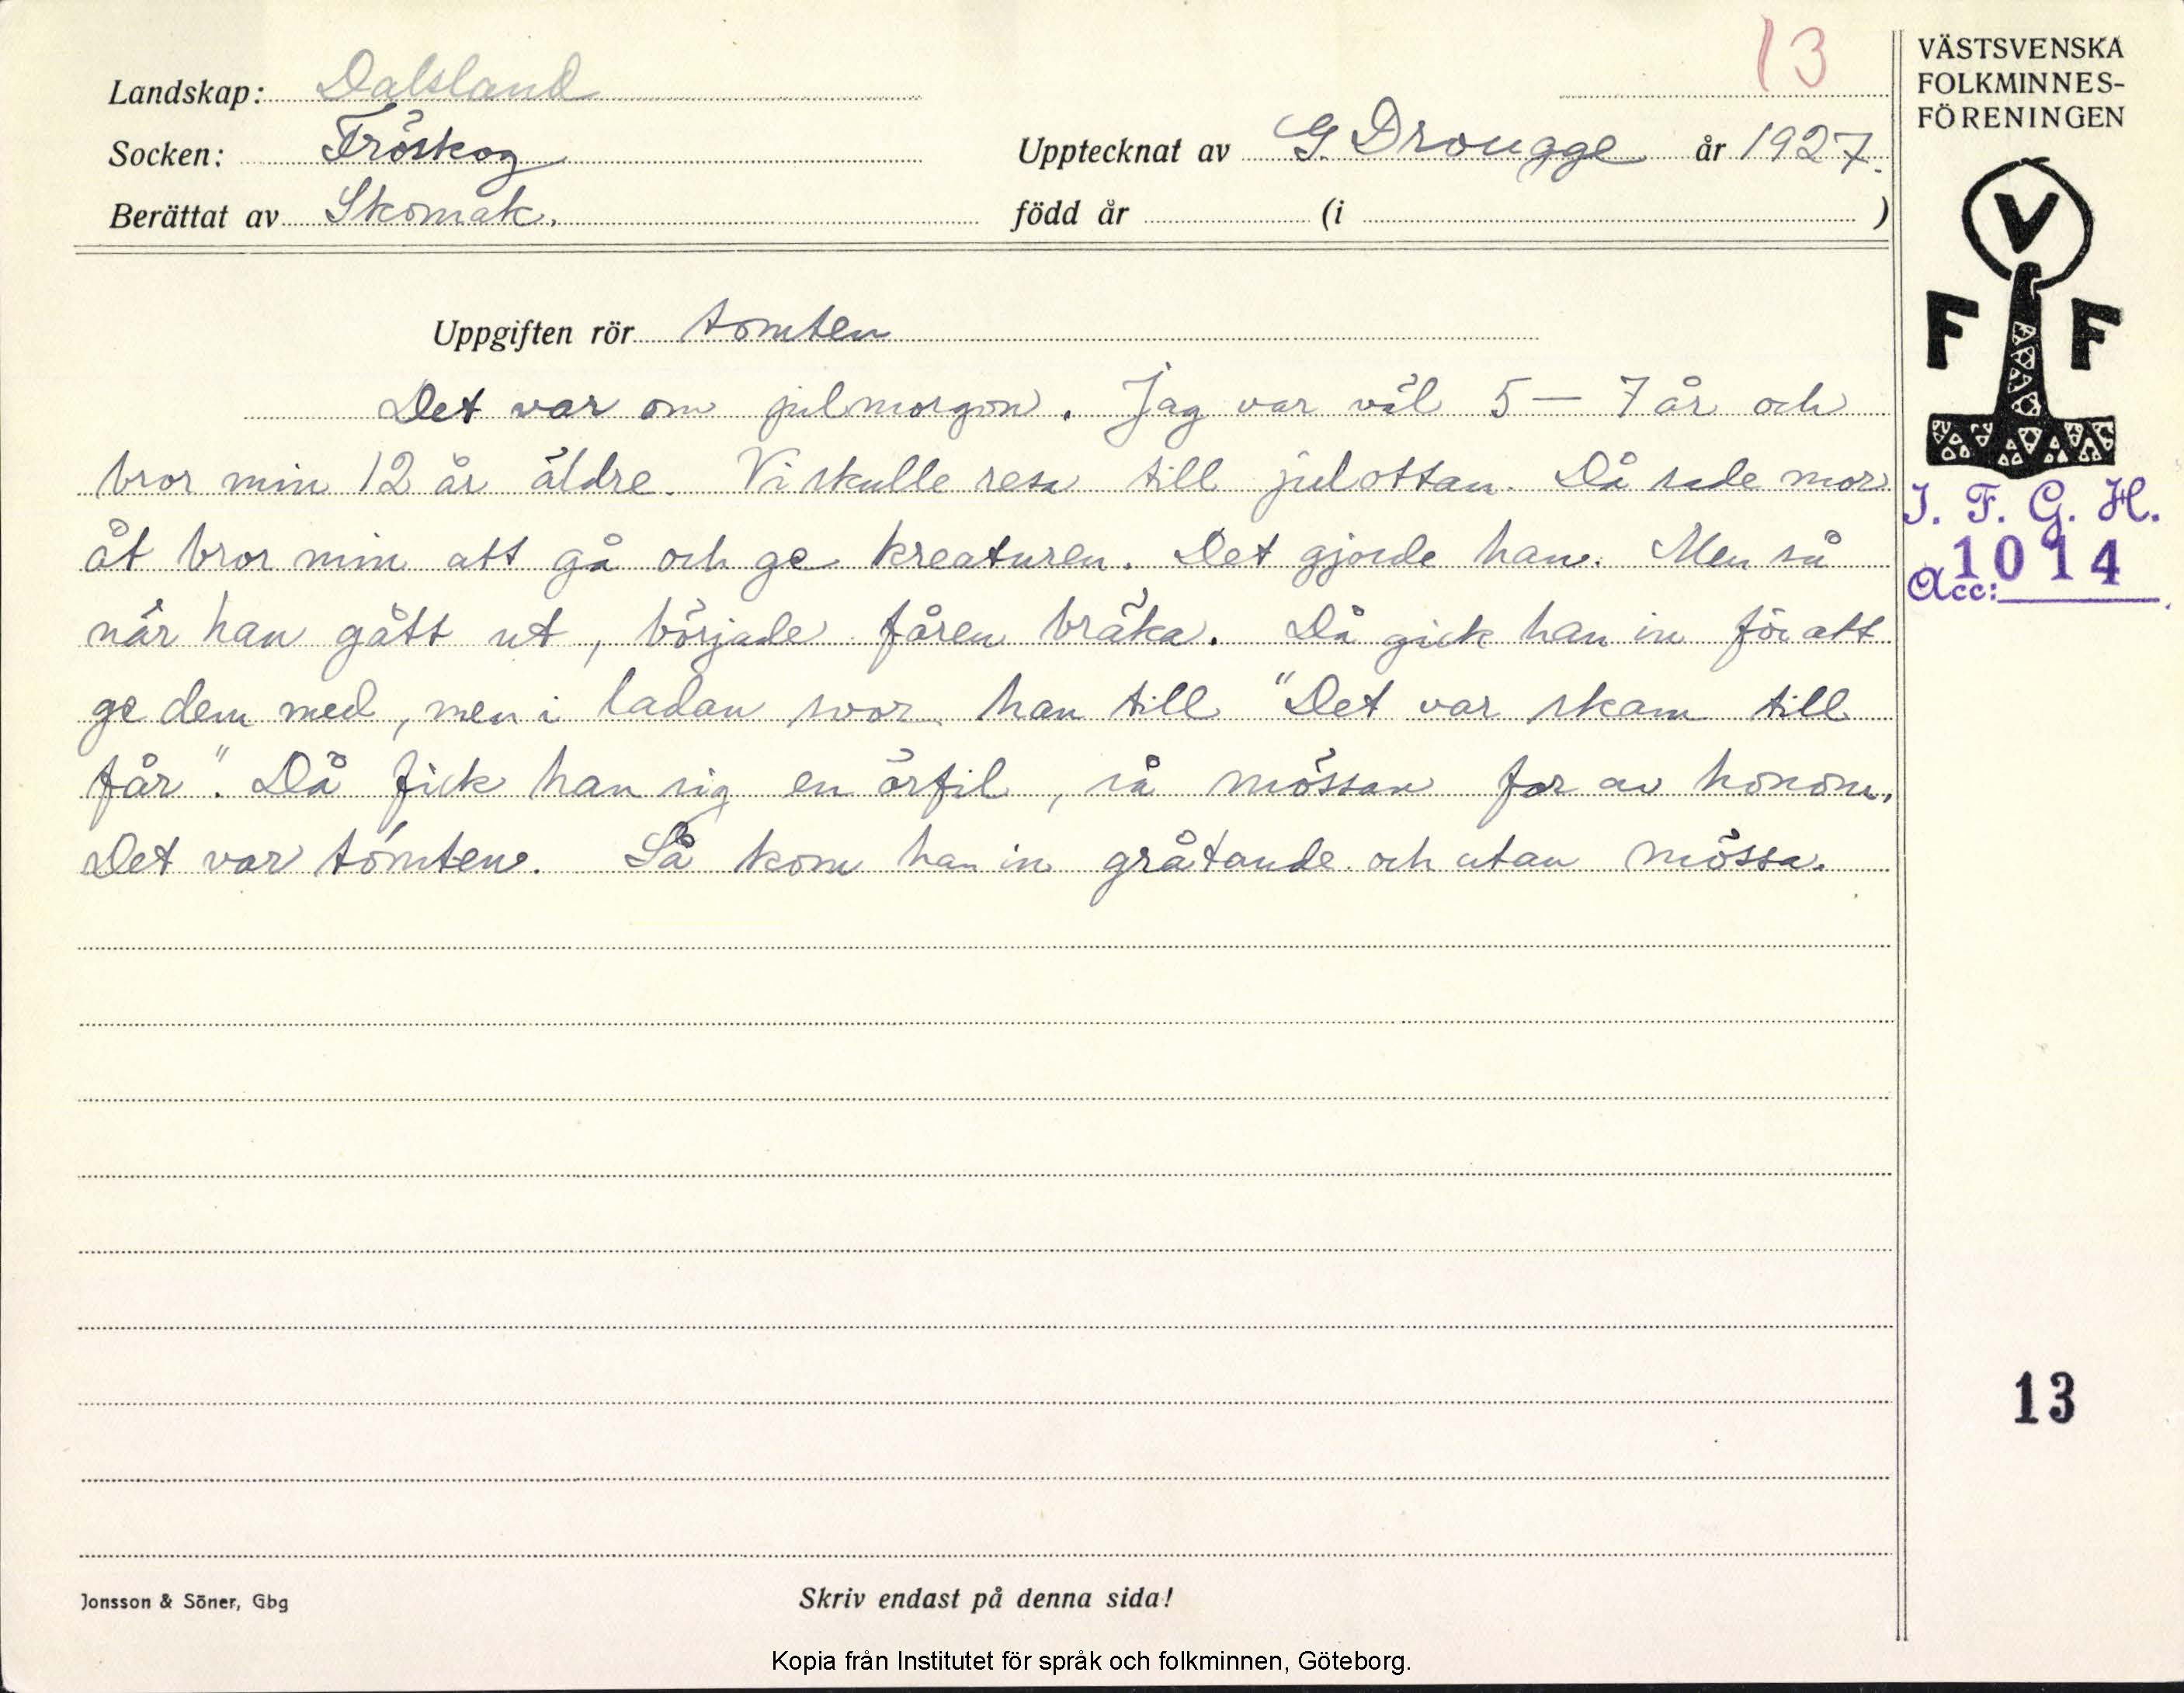 13
Landskap: Dalsland
Socken: Fröskog
Upptecknat av G. Drougge år 1927.
Berättat av Skomak.
född år (i )
Uppgiften rör tomten
Det var om julmorgon. Jag var väl 5 – 7 år och
bror min 12 år äldre. Vi skulle resa till julottan. Då sade mor
åt bror min att gå och ge kreaturen. Det gjorde han. Men så
när han gått ut, började fåren bräka. Då gick han in för att
ge dem med, men i ladan svor han till "Det var skam till
får". Då fick han sig en örfil, så mössan for av honom.
Det var tomten. Så kom han in gråtande och utan mössa.
VÄSTSVENSKA
FOLKMINNES-
FÖRENINGEN
V
F F
I. F. G. H.
Acc: 1014
13
Jonsson & Söner, Gbg
Skriv endast på denna sida!
Kopia från Institutet för språk och folkminnen, Göteborg.